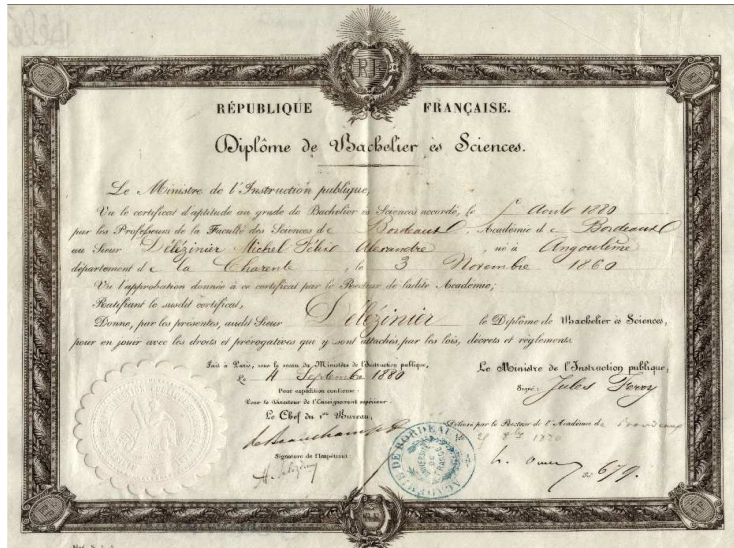 RF
RÉPUBLIQUE FRANÇAISE.
Diplôme de Bachelier ès Sciences.
Le Ministre de l'Instruction publique,
Vu le certificat d'aptitude au grade de Bachelier ès Sciences accordé, le Août 1880
par les Professeurs de la Faculté des Sciences de Bordeaux, Académie de Bordeaux
au Sieur Délézinier Michel Félix Alexandre, né à Angoulême
département de la Charente, le 3 Novembre 1860
Vu l'approbation donnée à ce certificat par le Recteur de ladite Académie;
Ratifiant le susdit certificat,
Donne, par les présentes, audit Sieur Délézinier le Diplôme de Bachelier ès Sciences,
pour en jouir avec les droits et prérogatives qui y sont attachés par les lois, décrets et règlements.
Fait à Paris, sous le sceau du Ministère de l'Instruction publique,
Le 4 Septembre 1880
Pour expédition conforme:
Pour le Directeur de l'Enseignement supérieur:
Le Chef du 1er Bureau,
de Beauchamp
Signature de l'Impétrant:
Le Ministre de l'Instruction publique,
Signé: Jules Ferry
Délivré par le Recteur de l'Académie de Bordeaux
le 1880
ACADÉMIE DE BORDEAUX
No 679.